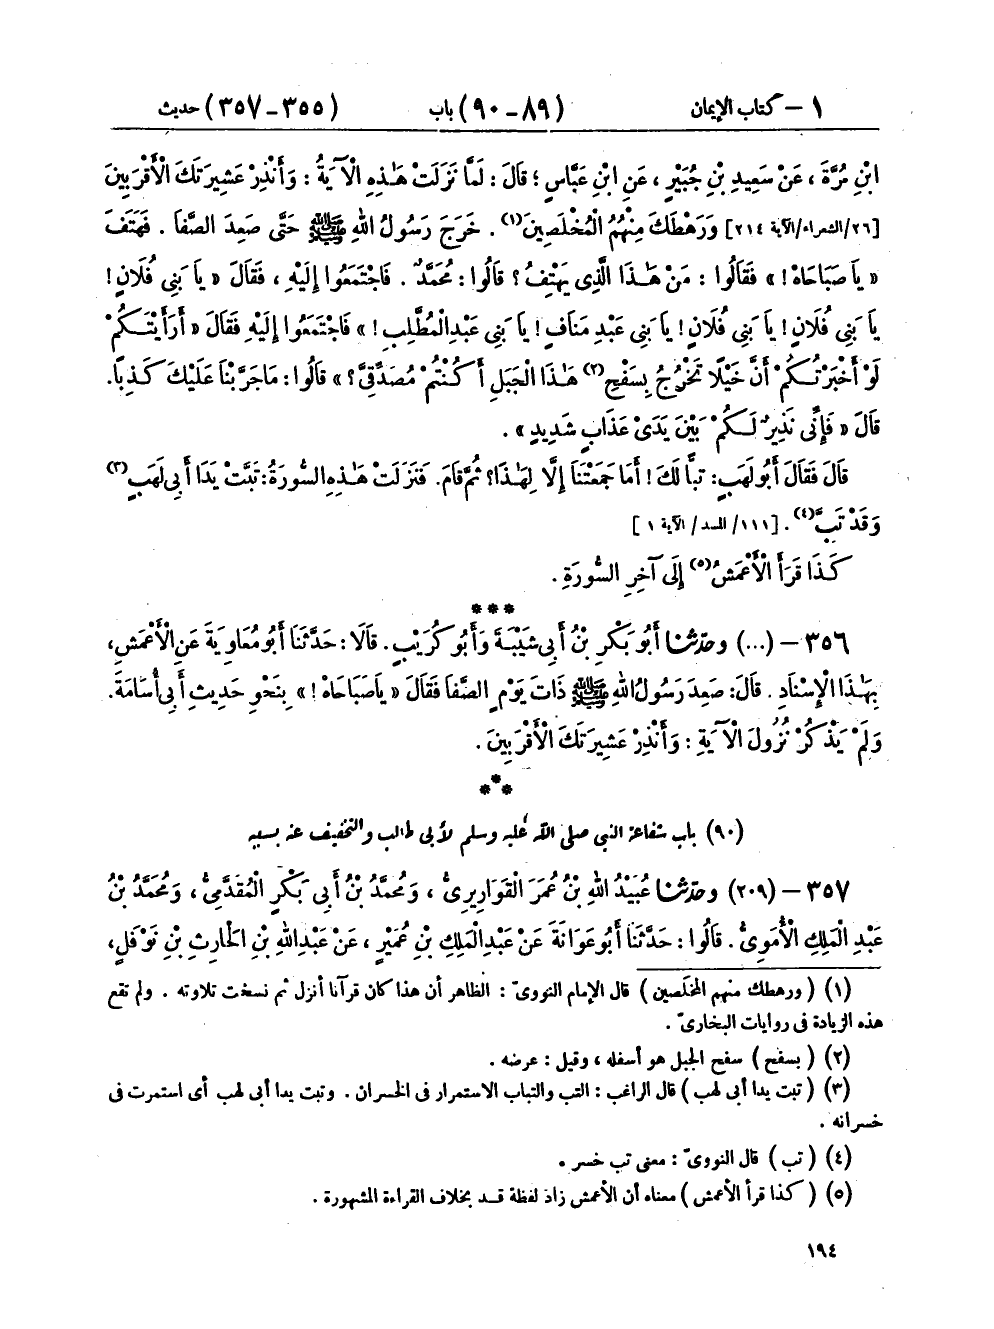 ١ – كتاب الإيمان (٨٩ - ٩٠) باب (٣٥٥ - ٣٥٧) حديث
ابْنِ مُرَّةَ ، عَنْ سَعِيدِ بْنِ جُبَيْرٍ ، عَنِ ابْنِ عَبَّاسٍ ؛ قَالَ : لَمَّا نَزَلَتْ هَٰذِهِ الْآيَةُ : وَأَنْذِرْ عَشِيرَتَكَ الْأَقْرَبِينَ
[٢٦/الشعراء/الآية ٢١٤] وَرَهْطَكَ مِنْهُمُ الْمُخْلَصِينَ(١) . خَرَجَ رَسُولُ اللهِ ﷺ حَتَّى صَعِدَ الصَّفَا . فَهَتَفَ
« يَا صَبَاحَاهْ ! » فَقَالُوا : مَنْ هَٰذَا الَّذِى يَهْتِفُ ؟ قَالُوا : مُحَمَّدٌ . فَاجْتَمَعُوا إِلَيْهِ ، فَقَالَ « يَا بَنِى فُلَانٍ !
يَا بَنِى فُلَانٍ ! يَا بَنِى فُلَانٍ ! يَا بَنِى عَبْدِ مَنَافٍ ! يَا بَنِى عَبْدِ الْمُطَّلِبِ ! » فَاجْتَمَعُوا إِلَيْهِ فَقَالَ « أَرَأَيْتَكُمْ
لَوْ أَخْبَرْتُكُمْ أَنَّ خَيْلًا تَخْرُجُ بِسَفْحِ(٢) هَٰذَا الْجَبَلِ أَكُنْتُمْ مُصَدِّقِىَّ ؟ » قَالُوا : مَا جَرَّبْنَا عَلَيْكَ كَذِبًا.
قَالَ « فَإِنِّى نَذِيرٌ لَكُمْ بَيْنَ يَدَىْ عَذَابٍ شَدِيدٍ » .
قَالَ فَقَالَ أَبُو لَهَبٍ: تَبًّا لَكَ ! أَمَا جَمَعْتَنَا إِلَّا لِهَٰذَا؟ ثُمَّ قَامَ. فَنَزَلَتْ هَٰذِهِ السُّورَةُ: تَبَّتْ يَدَا أَبِى لَهَبٍ(٣)
وَقَدْ تَبَّ(٤). [١١١/ المسد / الآية ١ ]
كَذَا قَرَأَ الْأَعْمَشُ(٥) إِلَى آخِرِ السُّورَةِ .
* * *
٣٥٦ – (...) وحَدَّثَنَا أَبُو بَكْرِ بْنُ أَبِى شَيْبَةَ وَأَبُو كُرَيْبٍ . قَالَا : حَدَّثَنَا أَبُو مُعَاوِيَةَ عَنِ الْأَعْمَشِ ،
بِهَٰذَا الْإِسْنَادِ . قَالَ: صَعِدَ رَسُولُ اللهِ ﷺ ذَاتَ يَوْمٍ الصَّفَا فَقَالَ « يَا صَبَاحَاهْ ! » بِنَحْوِ حَدِيثِ أَبِى أُسَامَةَ.
وَلَمْ يَذْكُرْ نُزُولَ الْآيَةِ : وَأَنْذِرْ عَشِيرَتَكَ الْأَقْرَبِينَ .
* * *
(٩٠) باب شفاعة النبي صلى الله عليه وسلم لأبى طالب والتخفيف عنه بسببه
٣٥٧ – (٢٠٩) وحَدَّثَنَا عُبَيْدُ اللهِ بْنُ عُمَرَ الْقَوَارِيرِىُّ ، وَمُحَمَّدُ بْنُ أَبِى بَكْرٍ الْمُقَدَّمِىُّ ، وَمُحَمَّدُ بْنُ
عَبْدِ الْمَلِكِ الْأُمَوِىُّ . قَالُوا : حَدَّثَنَا أَبُو عَوَانَةَ عَنْ عَبْدِ الْمَلِكِ بْنِ عُمَيْرٍ ، عَنْ عَبْدِ اللهِ بْنِ الْحَارِثِ بْنِ نَوْفَلٍ،
(١) ( ورهطك منهم المخلَصين ) قال الإمام النووىّ : الظاهر أن هذا كان قرآنا أنزل ثم نسخت تلاوته . ولم تقع
هذه الزيادة فى روايات البخارىّ .
(٢) ( بسفح ) سفح الجبل هو أسفله ، وقيل : عرضه .
(٣) ( تبت يدا أبى لهب ) قال الراغب : التب والتباب الاستمرار فى الخسران . وتبت يدا أبى لهب أى استمرت فى
خسرانه .
(٤) ( تب ) قال النووىّ : معنى تب خسر .
(٥) ( كذا قرأ الأعمش ) معناه أن الأعمش زاد لفظة قد بخلاف القراءة المشهورة .
١٩٤